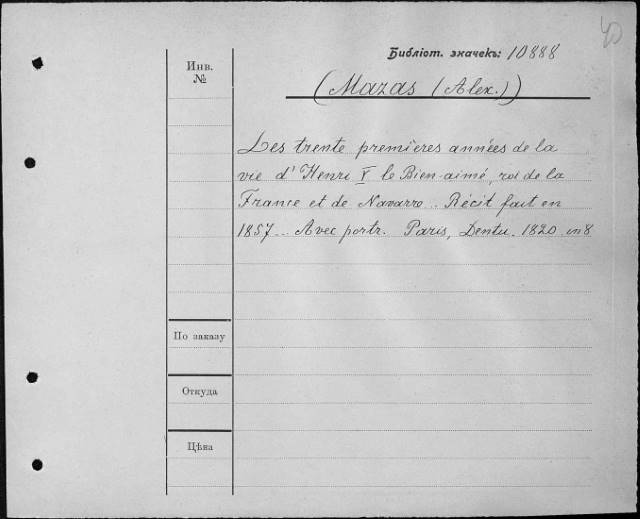 Библіот. значекъ: 10888
Инв.
№
(Mazas (Alex.))
Les trente premières années de la
vie d'Henri V le Bien-aimé, roi de la
France et de Navarro.. Récit fait en
1857.. Avec portr. Paris, Dentu. 1820 in 8
По заказу
Откуда
Цѣна